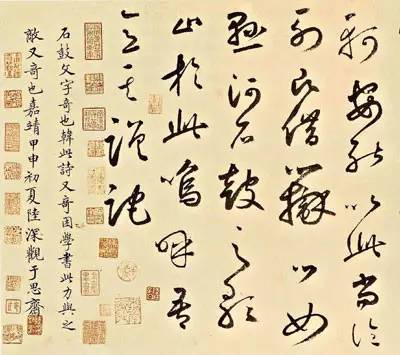 軻安能以此尚論
列願借辯口如
懸河石鼓之歌
止於此嗚呼吾
意其蹉跎
石鼓文字奇也韓此詩又奇困學書此力與之
敵又奇也嘉靖甲申初夏陸深觀于思齋